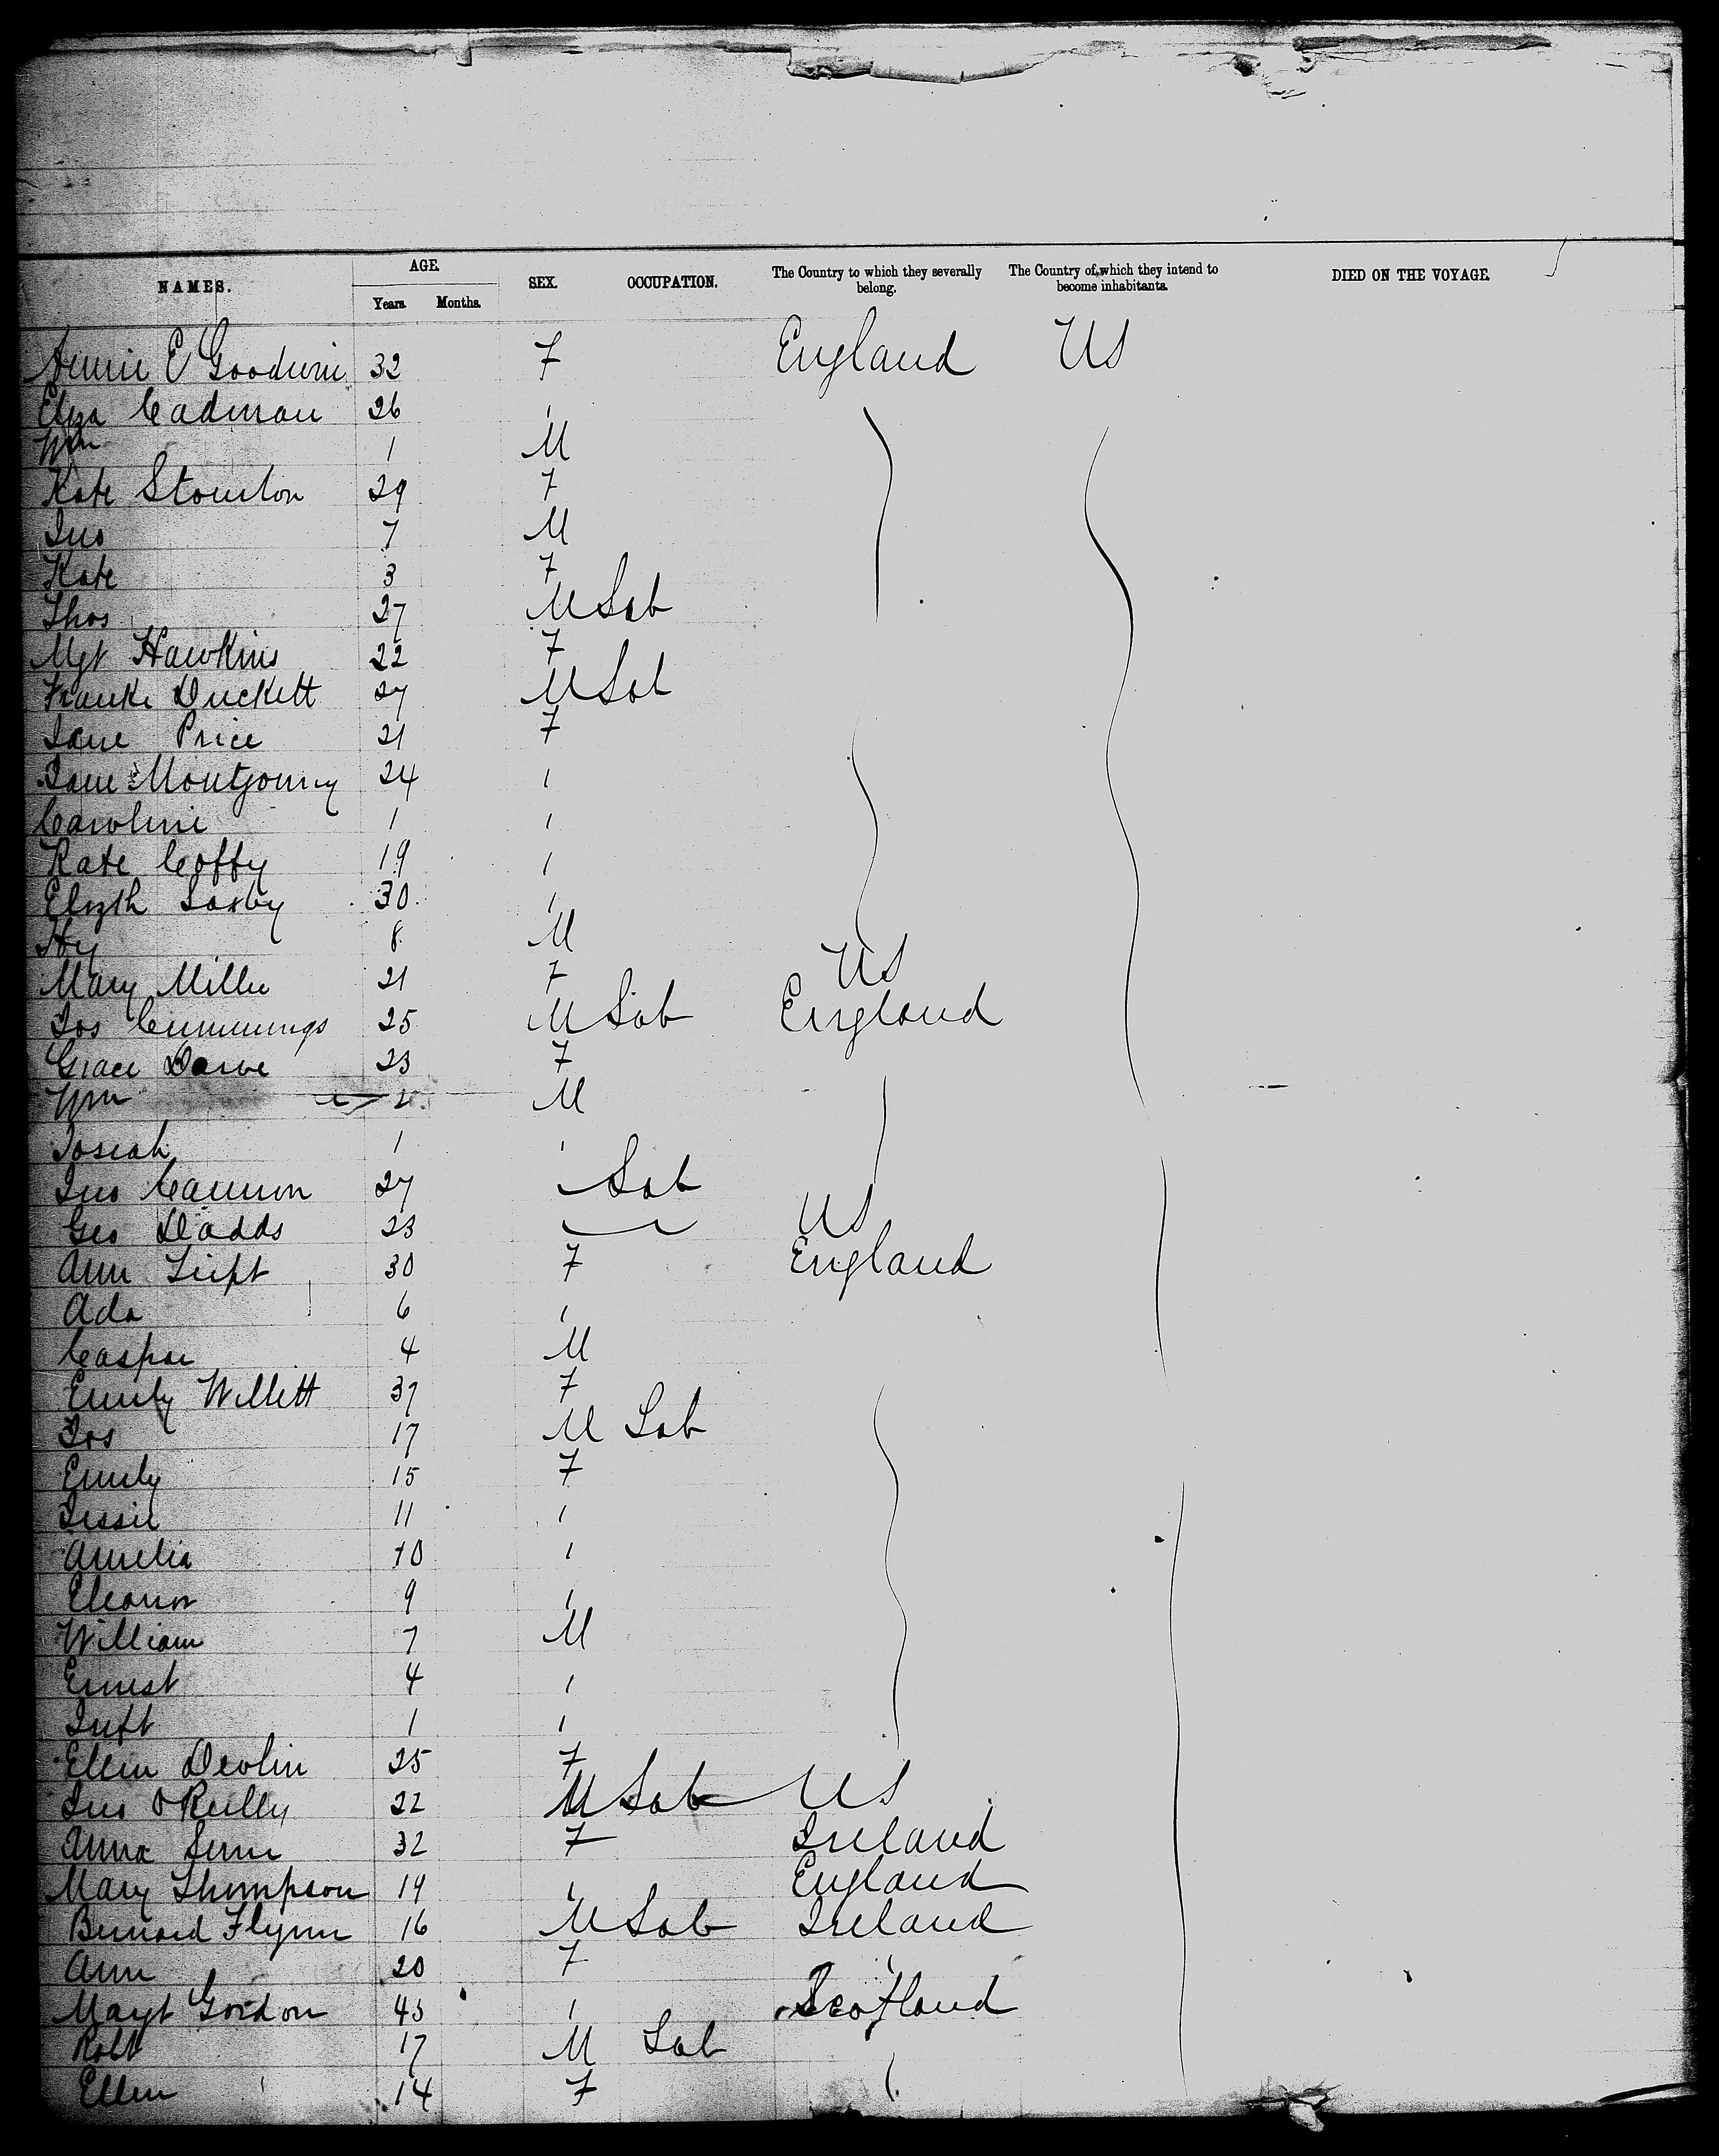 NAMES. AGE. SEX. OCCUPATION. The Country to which they severally belong. The Country of which they intend to become inhabitants. DIED ON THE VOYAGE.
Years. Months.
Annie E Goodwin 32 F England US
Eliza Cadman 26 "
Wm 1 M
Kate Stournton 29 F
Jno 7 M
Kate 3 F
Thos 27 M Lab
Mgt Hawkins 22 F
Franke Duckett 27 M Lab
Jane Price 21 F
Jane Montgomry 24 "
Caroline 1 "
Kate Coffy 19 "
Elizth Saxby 30 "
Hy 8 M
Mary Miller 21 F US
Jos Cummings 25 M Lab England
Grace Dawe 23 F
Wm 2 M
Josiah 1 "
Jno Cannon 27 " Lab
Geo Dadds 23 US
Ann Tuft 30 F England
Ada 6 "
Caspar 4 M
Emily Willett 37 F
Jos 17 M Lab
Emily 15 F
Jessie 11 "
Amelia 10 "
Eleanor 9 "
William 7 M
Ernest 4 "
Inft 1 "
Ellen Devlin 25 F
Jno O'Reilly 22 M Lab US
Anna 32 F Ireland
Mary Thompson 19 " England
Bernard Flynn 16 M Lab Ireland
Ann 20 F "
Margt Gordon 45 " Scotland
Robt 17 M Lab
Ellen 14 F